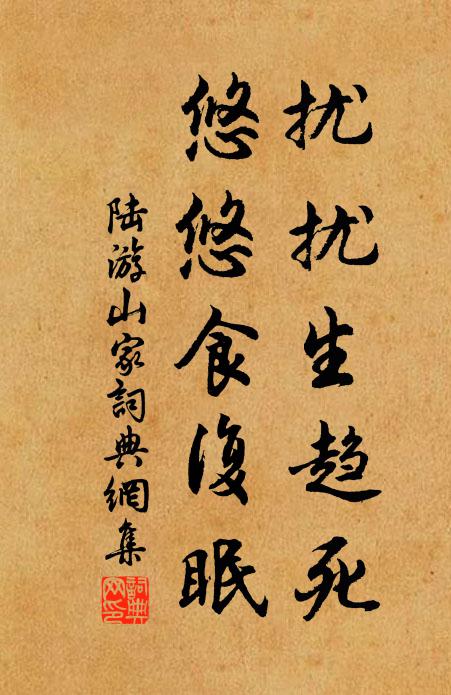 扰扰生趋死
悠悠食復眠
陆游山家詞典網集
詞典网印